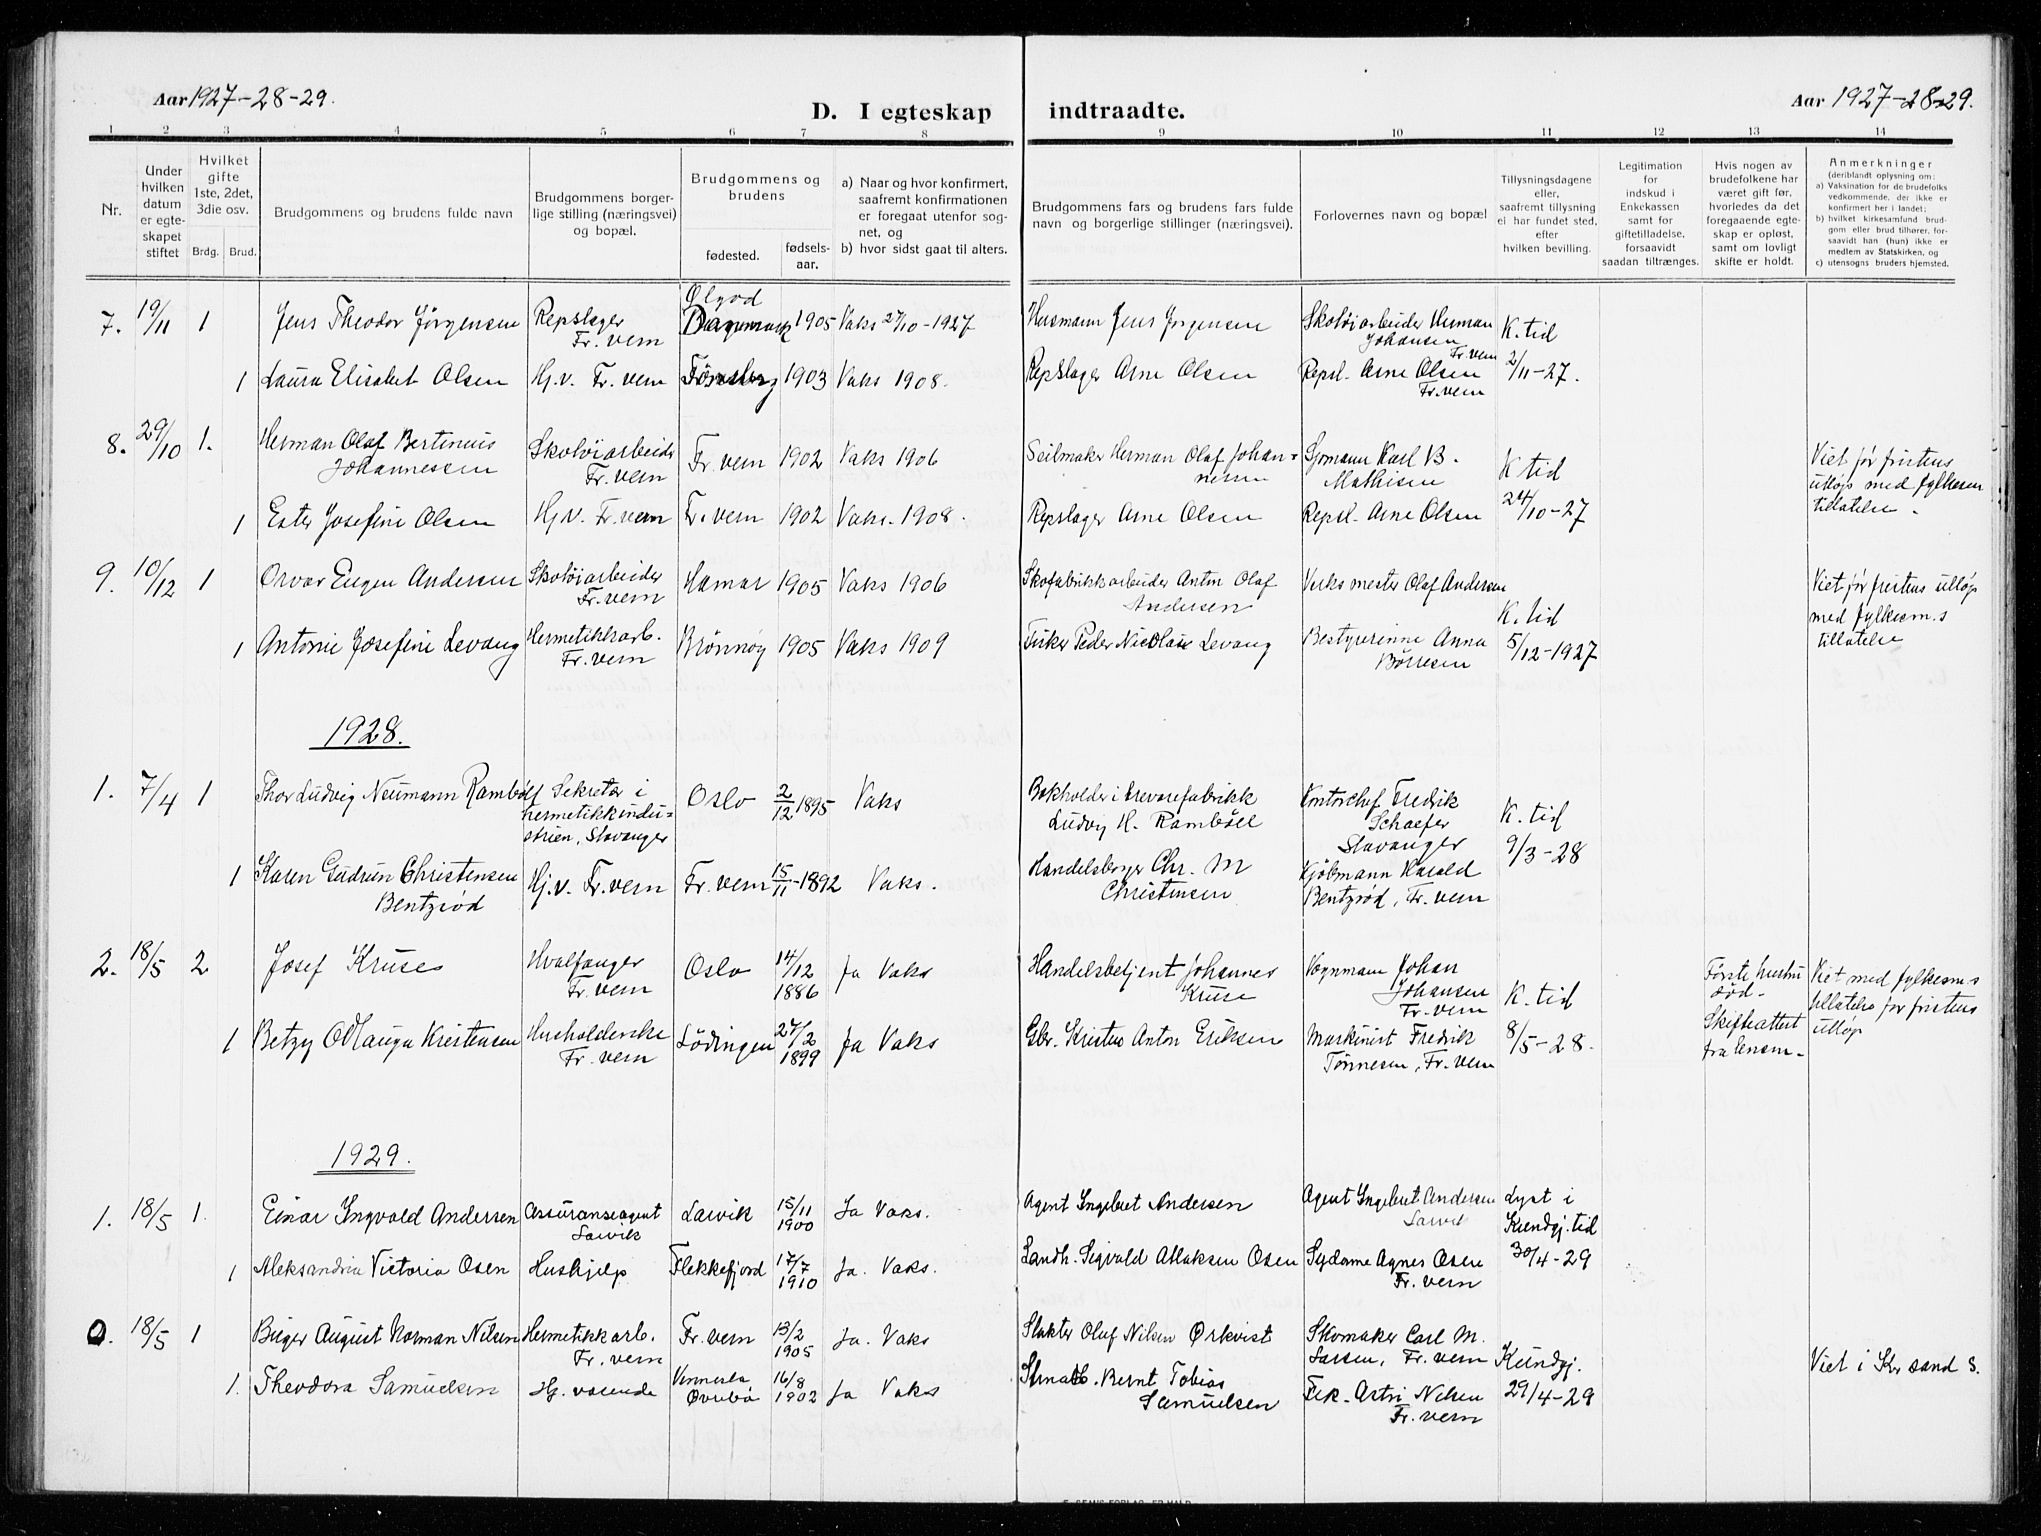 Aar 1927-28-29.
D. I egteskap indtraadte.
Aar 1927-28-29.
1 2 3 4 5 6 7 8 9 10 11 12 13 14
Nr.
Under hvilken datum er egteskapet stiftet
Hvilket gifte 1ste, 2det, 3die osv.
Brdg. Brud.
Brudgommens og brudens fulde navn
Brudgommens borgerlige stilling (næringsvei) og bopæl.
Brudgommens og brudens
fødested.
fødselsaar.
a) Naar og hvor konfirmert, saafremt konfirmationen er foregaat utenfor sognet, og
b) hvor sidst gaat til alters.
Brudgommens fars og brudens fars fulde navn og borgerlige stillinger (næringsvei).
Forlovernes navn og bopæl
Tillysningsdagene eller, saafremt tillysning ei har fundet sted, efter hvilken bevilling.
Legitimation for indskud i Enkekassen samt for giftetilladelse, forsaavidt saadan tiltrænges.
Hvis nogen av brudefolkene har været gift før, hvorledes da det foregaaende egteskap er opløst, samt om lovligt skifte er holdt.
Anmerkninger
(deriblandt oplysning om:
a) Vaksination for de brudefolks vedkommende, der ikke er konfirmert her i landet;
b) hvilket kirkesamfund brudgom eller brud tilhører, forsaavidt han (hun) ikke er medlem av Statskirken, og
c) utensogns bruders hjemsted.
7. 19/11 1 Jens Theodor Jørgensen Repslager Fr. vern Ølgod Danmark 1905 Vaks 27/10-1927 Husmann Jens Jørgensen Skotøiarbeider Herman Johansen Fr. vern K. tid
1 Laura Elisabet Olsen Hj.v. Fr. vern Tønsberg 1903 Vaks 1908. Repslager Arne Olsen Repsl. Arne Olsen Fr. vern 2/11-27.
8. 29/10 1. Herman Olaf Bertinius Johannessen Skotøiarbeider Fr. vern Fr. vern 1902 Vaks 1906 Seilmaker Herman Olaf Johannesen Sjømann Karl B. Mathisen K tid Viet før fristens utløp med fylkesm tillatelse.
1 Ester Josefine Olsen Hj.v. Fr. vern Fr. vern 1902 Vaks. 1908. Repslager Arne Olsen Repsl. Arne Olsen 24/10-27
9. 10/12 1 Orvar Eugen Andersen Skotøiarbeider Fr. vern Hamar 1905 Vaks 1906 Skofabrikkarbeider Anton Olaf Andersen Verksmester Olaf Andersen K. tid Viet før fristens utløp med fylkesm.s tillatelse
1 Antonie Josefine Levang Hermetikkarb. Fr. vern Brønnøy 1905 Vaks 1909 Fisker Peder Nicolai Levang Bestyrerinne Anna Børresen 5/12-1927
1928.
1. 7/4 1 Thor Ludvig Neumann Rambøll Sekretær i hermetikkindustrien, Stavanger Oslo 2/12 1895 Vaks Bokholder i trevarefabrikk Ludvig H. Rambøll Kontorchef Fredrik Schaefer Stavanger K. tid
1 Karen Gudrun Christensen Bentzrød Hj.v. Fr. vern Fr. vern 15/11-1892 Vaks. Handelsborger Chr. M Christensen Kjøbmann Harald Bentzrød, Fr. vern 9/3-28
2. 18/5 2 Josef Kruse Hvalfanger Fr. vern Oslo 14/12 1886 Ja Vaks Handelsbetjent Johannes Kruse Vognmann Johan Johansen Fr. vern K. tid Første hustru død. Viet med fylkesm.s tillatelse før fristens utløp
1 Betzy Othauga Kristensen Husholderske Fr. vern Lødingen 27/2 1899 Ja Vaks Gbr. Kristen Anton Eriksen Maskinist Fredrik Tønnesen, Fr. vern 8/5-28. Skifteattest fra lensm.
1929.
1. 18/5 1. Einar Ingvald Andersen Assuranseagent Larvik Larvik 15/11 1900 Ja Vaks. Agent Ingebret Andersen Agent Ingebret Andersen Larvik Lyst i Kundgj. tid
1 Aleksandria Victoria Osen Hushjelp Flekkefjord 17/7 1910 Ja. Vaks. Landh. Sigvald Atlaksen Osen Sydame Agnes Osen Fr. vern 30/4-29
0. 18/5 1 Birger August Norman Nilsen Hermetikkarb. Fr. vern Fr. vern 13/2 1905 Ja. Vaks Slakter Oluf Nilsen Ørkvist Skomaker Carl M. Larsen, Fr. vern Kundgj.
1. Theodora Samuelsen Hj. værende Vennesla Øvrebø 16/8 1902 Ja Vaks Bernt Tobias Samuelsen Frk. Astri Nilsen Fr. vern 29/4-29 Viet i Kr sand S.